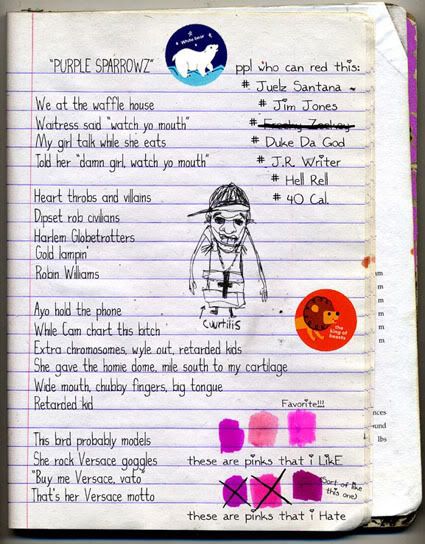 White bear
"PURPLE SPARROWZ"
ppl who can red this:
# Juelz Santana ~
# Jim Jones
# Freeky Zeekey
# Duke Da God
# J.R. Writer
# Hell Rell
# 40 Cal.
We at the waffle house
Waitress said "watch yo mouth"
My girl talk while she eats
Told her "damn girl, watch yo mouth"
Heart throbs and villains
Dipset rob civilians
Harlem Globetrotters
Gold lampin'
Robin Williams
Curtiiis
the king of beasts
Ayo hold the phone
While Cam chart this bitch
Extra chromosomes, wyle out, retarded kids
She gave the homie dome, mile south to my cartilage
Wide mouth, chubby fingers, big tongue
Retarded kid
Favorite!!!
This bird probably models
She rock Versace goggles
"Buy me Versace, vato"
That's her Versace motto
these are pinks that i LikE
(Sort of like
this one)
these are pinks that i Hate
m
m
m
m
nces
ound
lbs